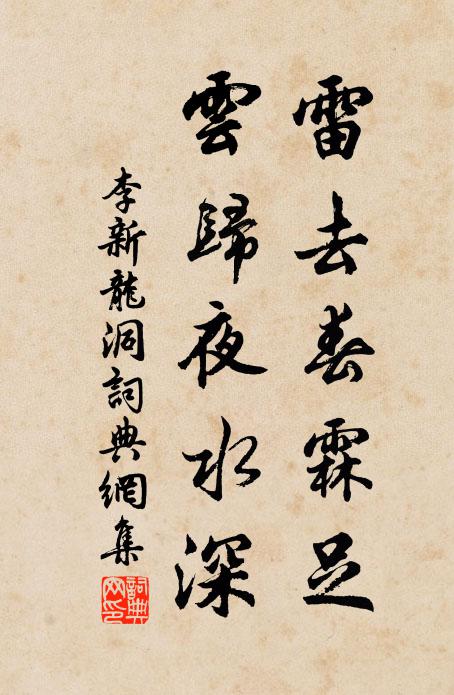 雷去春霖足
雲歸夜水深
李新龍洞詞典網集
詞典網印